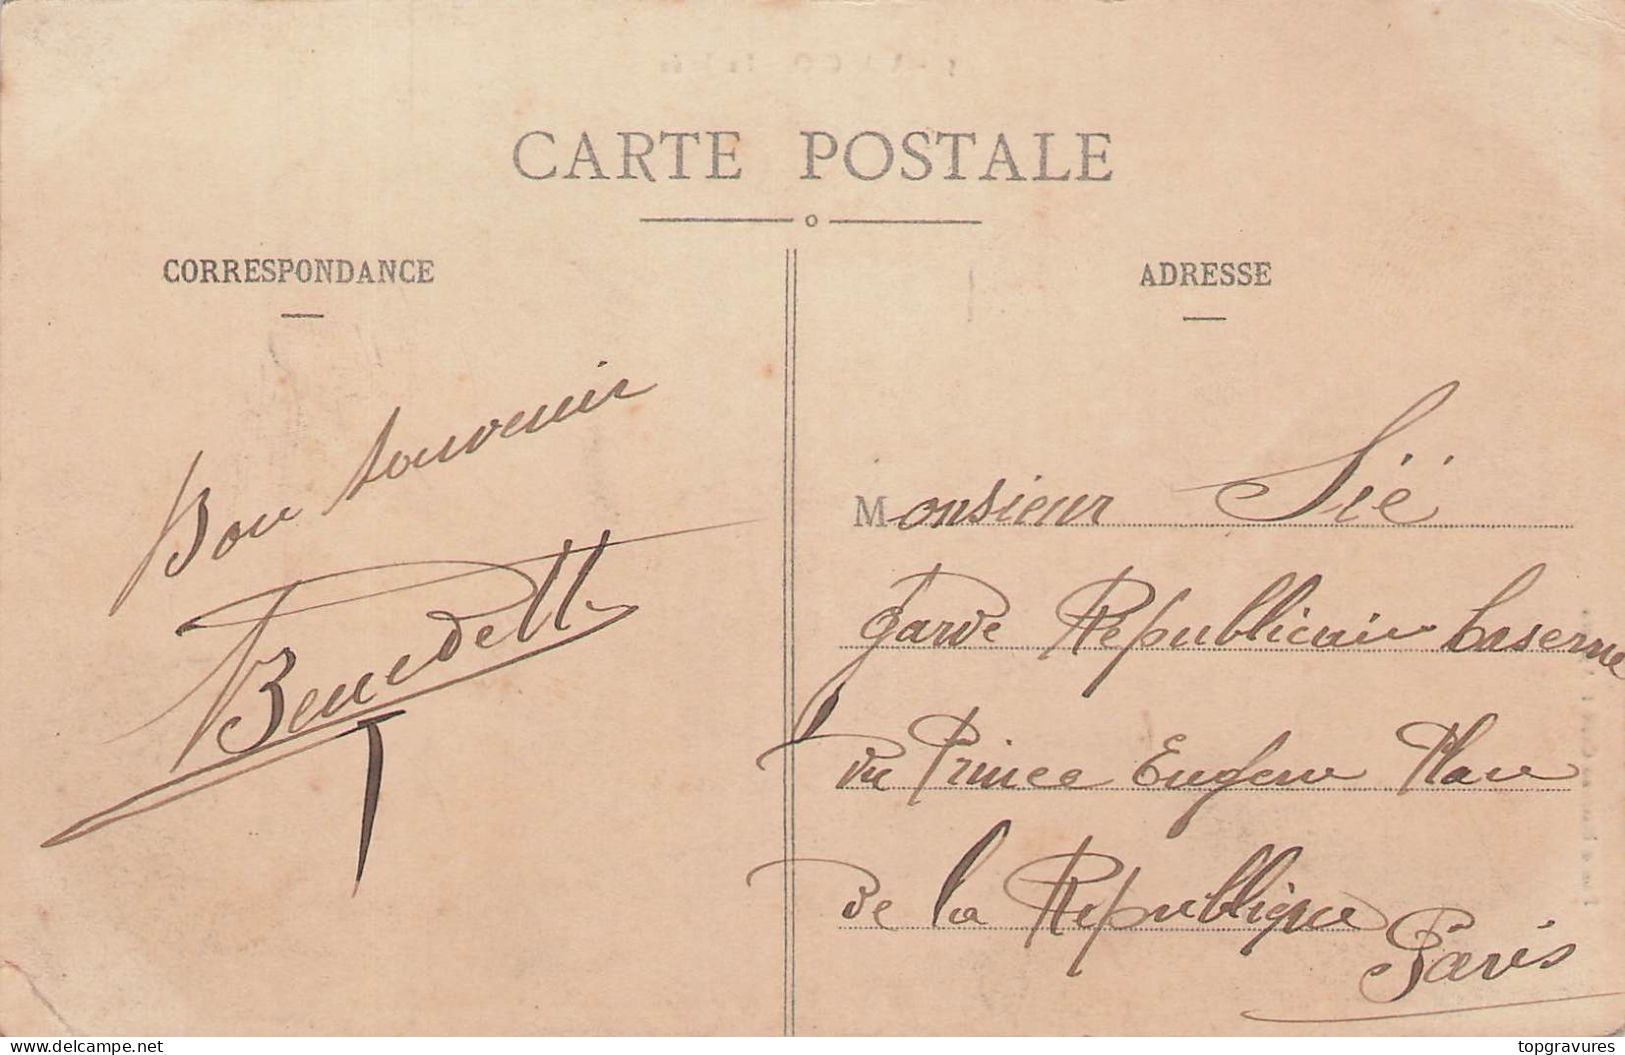 CARTE POSTALE
CORRESPONDANCE
ADRESSE
Bon souvenir
Benedetti
Monsieur Sié
garde Republicain Caserne
du Prince Eugene Place
de la Republique
Paris
www.delcampe.net
topgravures